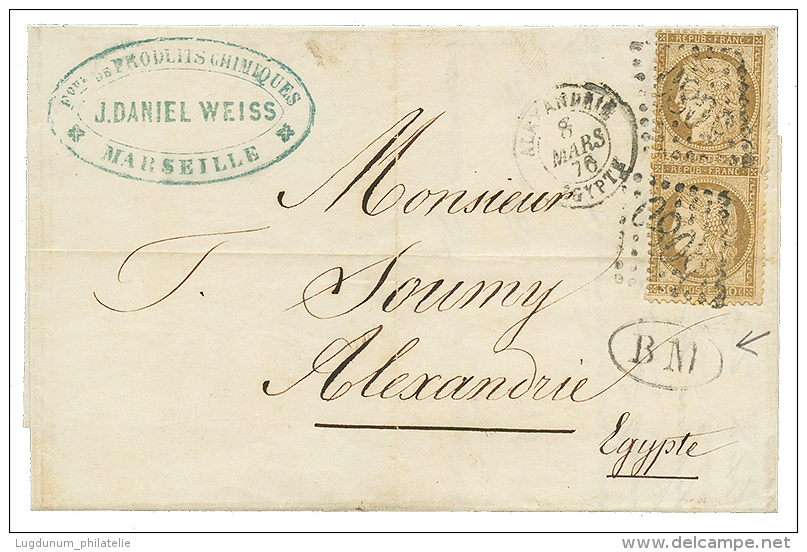 FQUE DE PRODUITS CHIMIQUES
J. DANIEL WEISS
MARSEILLE
ALEXANDRIE
8
MARS
76
EGYPTE
REPUB · FRANC
REPUB · FRANC
POSTES
5080
Monsieur
T. Soumy
Alexandrie
Egypte
BM
Lugdunum_philatelie
www.delcampe.net